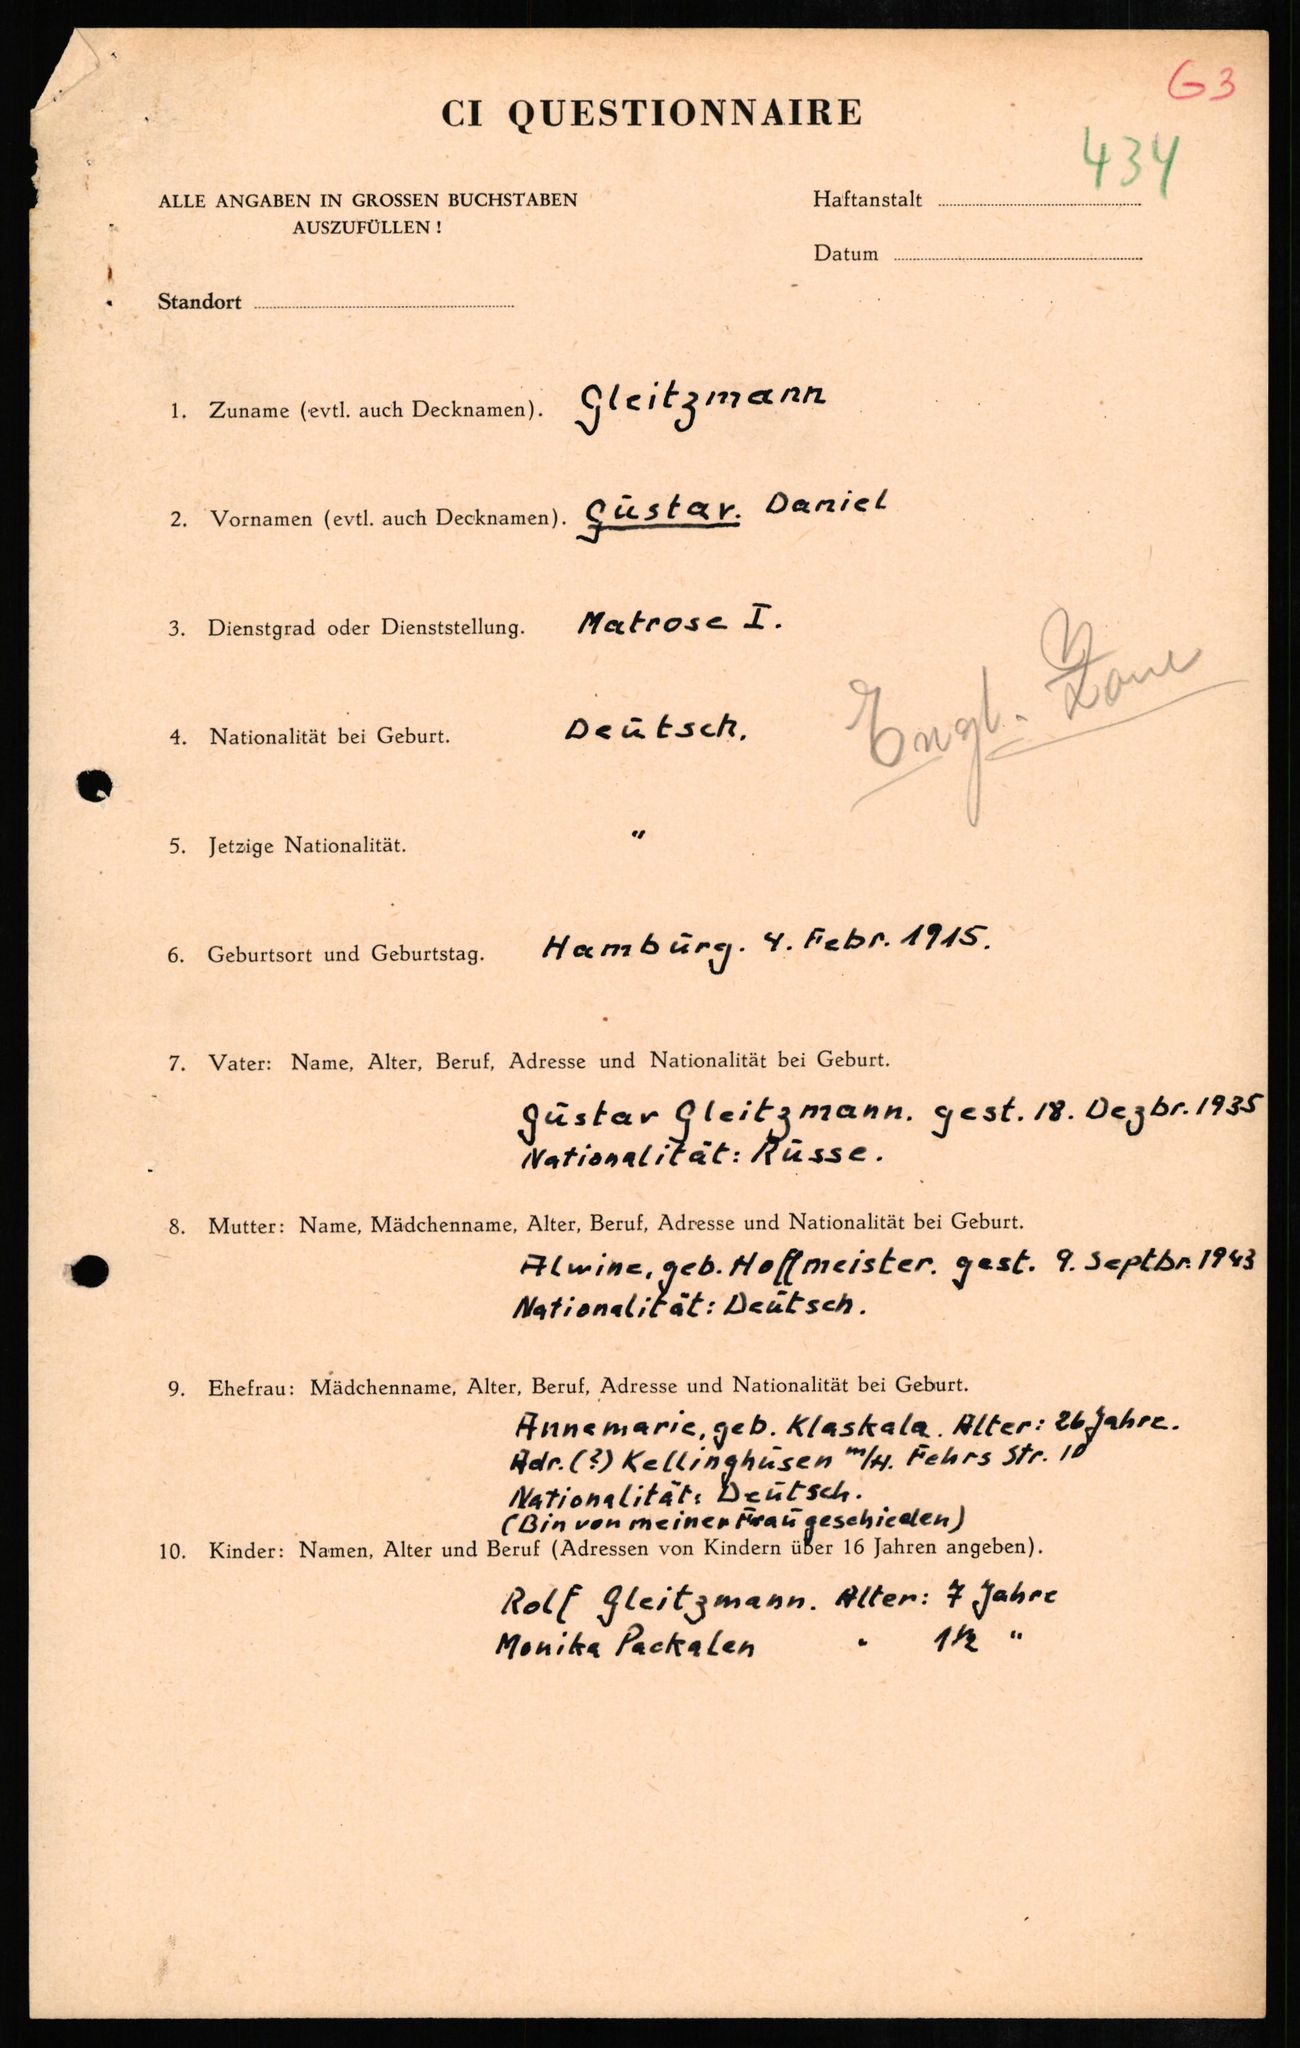 G3
CI QUESTIONNAIRE
434
ALLE ANGABEN IN GROSSEN BUCHSTABEN
AUSZUFÜLLEN!
Haftanstalt
Datum
Standort
1. Zuname (evtl. auch Decknamen). Gleitzmann
2. Vornamen (evtl. auch Decknamen). Gūstav. Daniel
3. Dienstgrad oder Dienststellung. Matrose I.
Engl. Zone
4. Nationalität bei Geburt. Deūtsch.
5. Jetzige Nationalität. "
6. Geburtsort und Geburtstag. Hambūrg. 4. Febr. 1915.
7. Vater: Name, Alter, Beruf, Adresse und Nationalität bei Geburt.
Gūstav Gleitzmann. gest. 18. Dezbr. 1935
Nationalität: Rūsse.
8. Mutter: Name, Mädchenname, Alter, Beruf, Adresse und Nationalität bei Geburt.
Alwine, geb. Hoffmeister. gest. 9. Septbr. 1943
Nationalität: Deūtsch.
9. Ehefrau: Mädchenname, Alter, Beruf, Adresse und Nationalität bei Geburt.
Annemarie, geb. Klaskala. Alter: 26 Jahre.
Adr. (?) Kellinghūsen m/H. Fehrs Str. 10
Nationalität: Deūtsch.
(Bin von meiner Fraū geschieden)
10. Kinder: Namen, Alter und Beruf (Adressen von Kindern über 16 Jahren angeben).
Rolf Gleitzmann. Alter: 7 Jahre
Monika Packalen " 1½ "